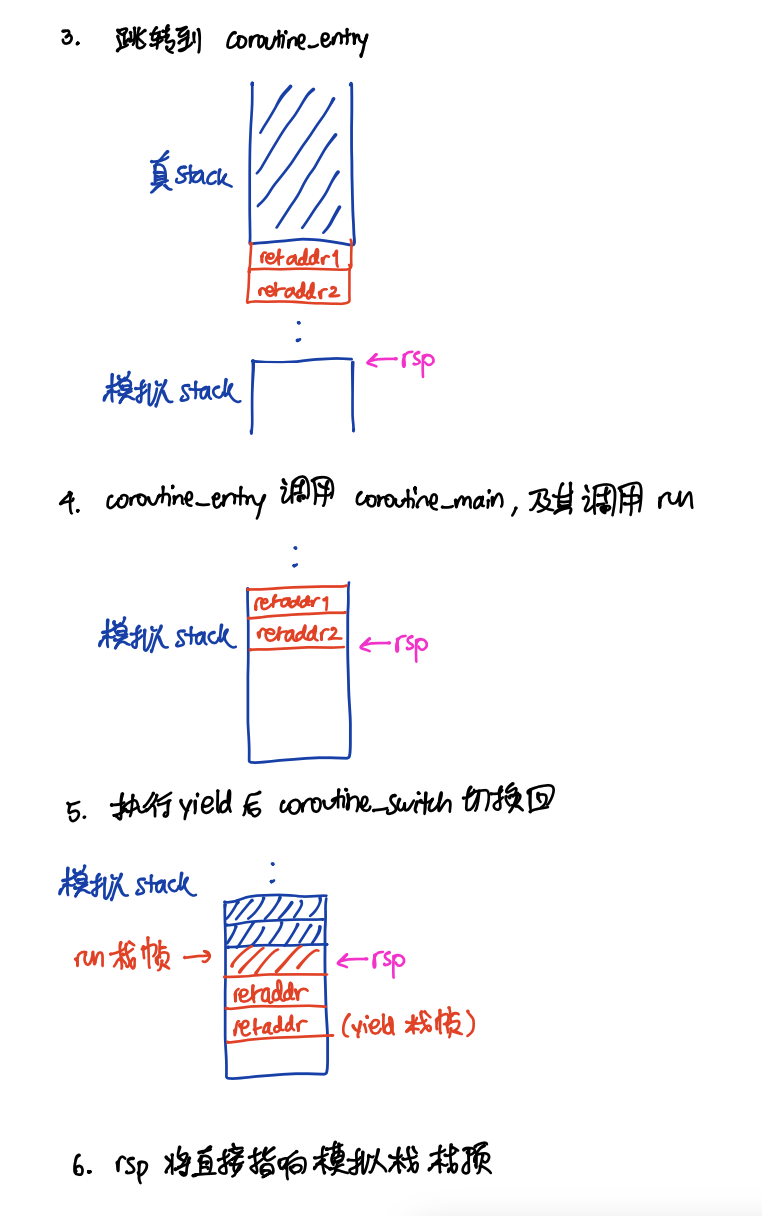 3. 跳转到 coroutine_entry
真stack
retaddr1
retaddr2
←rsp
模拟stack
4. coroutine_entry 调用 coroutine_main, 及其调用 run
retaddr1
模拟stack
retaddr2
←rsp
5. 执行yield后 coroutine_switch 切换回
模拟stack
run栈帧→
←rsp
retaddr
retaddr (yield 栈帧)
6. rsp 将直接指向模拟栈 栈顶